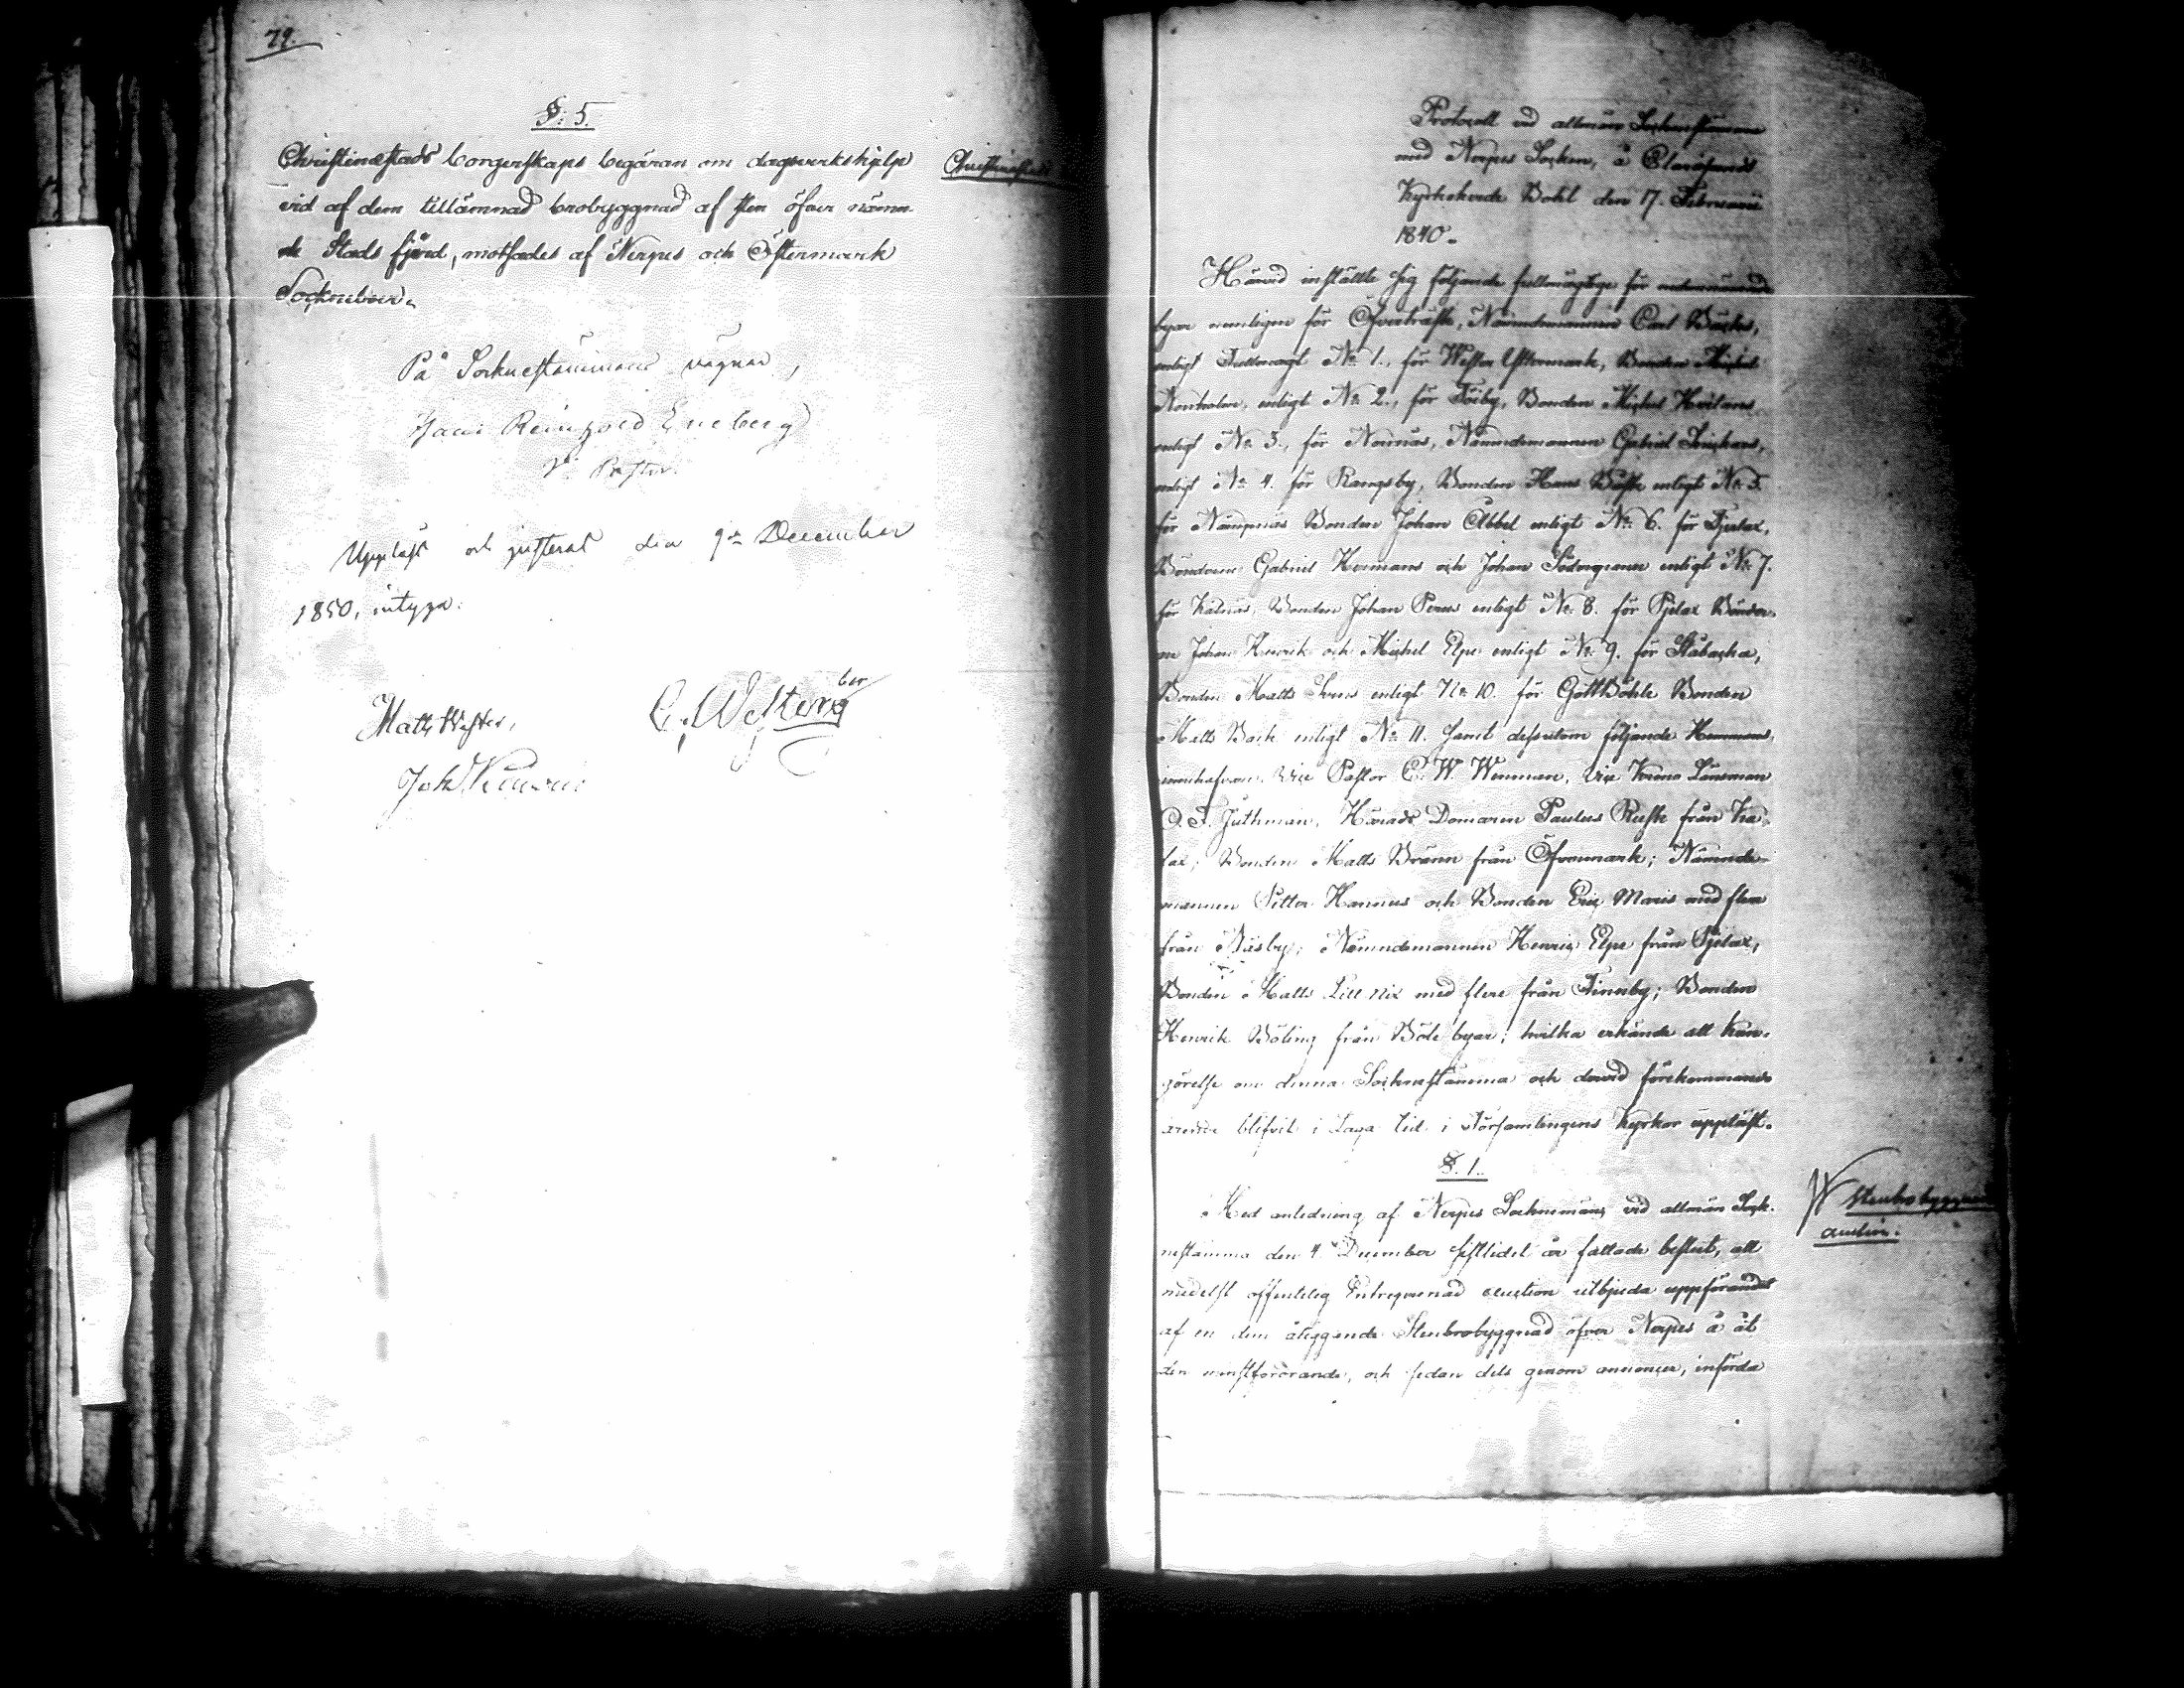 79.
§: 5.
Christinæstads borgerskaps begäran om dagsverkshjelp
vid af dem tillämnad brobyggnad af sten öfver nämn-
de Stads fjärd, motsades af Nerpes och Östermark
Sockneboer.
På Socknestämmans vägnar,
Hans Reinhold Eneberg
V. Pastor.
Uppläst och justerat den 9de December
1850, intyga:
Matts Wester, C. Westerberg
Joh.
Protocoll vid allmän Sockenstämma
med Nerpes Socken, å
Bohl den 17. Februarii
1840.
Härvid inställte sig följande fullmägtige för
byar nemligen för Öfverträsk, Nämndemannen Carl
enligt Fullmagt No 1., för Wester Yttermark, Bonden Michel
enligt No 2., för Töjby, Bonden Michel
enligt No 3., för Norrnäs, Nämndemannen Gabriel
enligt No 4. för Rangsby, Bonden Hans enligt No 5.
för Nämpnäs Bonden Johan Abbel enligt No 6. för Tjerlax,
Bönderne Gabriel Hermans och Johan Södergrann enligt No 7.
för Kalnäs, Bonden Johan Perus enligt No 8. för Pjelax Bönder-
ne Johan Henrik och Michel Elpe enligt No 9. för Ståbacka,
Bonden Matts enligt No 10. för Gottböhle Bonden
Matts Back enligt No 11. samt dessutom följande Hemmans
innehafvare, Vice Pastor C. W. Wenman, Vice Krono Länsman
O. F. Juthman, Härads Domaren Paulus Rusk från Ka-
lax; Bonden Matts Bränn från Öfvermark; Nämnde-
mannen Petter Hannus och Bonden Eric Maris med flere
från Näsby; Nämndemannen Henric Elpe från Pjelax,
Bonden Matts Lill Nix med flere från Finnby; Bonden
Henrik Böling från Böle byar; hvilka erkände att kun-
görelse om denna Socknestämma och dervid förekommande
ärende blifvit i Laga tid i Församlingens Kyrkor uppläst.
§. 1.
Med anledning af Nerpes Socknemäns vid allmän Sock-
nestämma den 4 December sistlidet år fattade beslut, att
medelst offentelig Entreprenad auction utbjuda uppförandet
af en dem åliggande Stenbrobyggnad öfver Nerpes å åt
den minstfordrande, och sedan dels genom annoncer, införda
Stenbrobyggnads
auction.